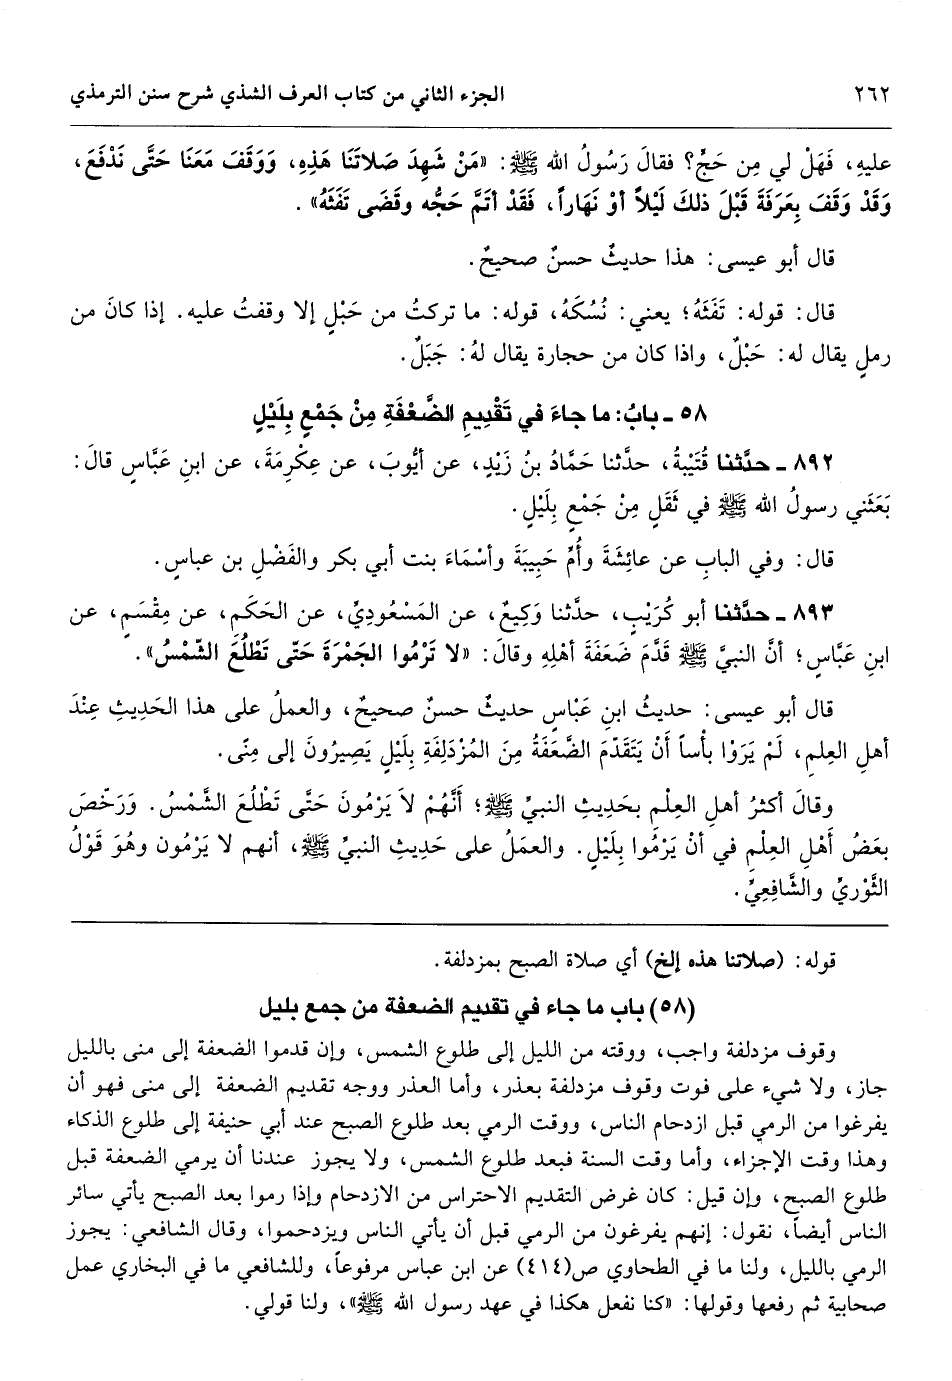 ٢٦٢
الجزء الثاني من كتاب العرف الشذي شرح سنن الترمذي
عليهِ، فَهَلْ لي مِن حَجٍّ؟ فقالَ رَسُولُ الله ﷺ: «مَنْ شَهِدَ صَلاتَنَا هَذِهِ، وَوَقَفَ مَعَنَا حَتَّى نَدْفَعَ،
وَقَدْ وَقَفَ بِعَرَفَةَ قَبْلَ ذلكَ لَيْلاً أوْ نَهَاراً، فَقَدْ أتَمَّ حَجُّه وقَضَى تَفَثَهُ».
قال أبو عيسى: هذا حديثٌ حسنٌ صحيحٌ.
قال: قوله: تَفَثَهُ؛ يعني: نُسُكَهُ، قوله: ما تركتُ من حَبْلٍ إلا وقفتُ عليه. إذا كانَ من
رملٍ يقال له: حَبْلٌ، واذا كان من حجارة يقال لهُ: جَبَلٌ.
٥٨ ـ بابُ: ما جاءَ في تَقْدِيمِ الضَّعْفَةِ مِنْ جَمْعٍ بِلَيْلٍ
٨٩٢ ـ حدَّثنا قُتَيْبةُ، حدَّثنا حَمَّادُ بنُ زَيْدٍ، عن أيُّوبَ، عن عِكْرِمَةَ، عن ابنِ عَبَّاسٍ قالَ:
بَعَثَني رسولُ الله ﷺ في ثَقَلٍ مِنْ جَمْعٍ بِلَيْلٍ.
قال: وفي البابِ عن عائِشَةَ وأُمِّ حَبِيبَةَ وأسْمَاءَ بنت أبي بكر والفَضْلِ بن عباسٍ.
٨٩٣ ـ حدَّثنا أبو كُرَيْبٍ، حدَّثنا وَكِيعٌ، عن المَسْعُوديِّ، عن الحَكَمِ، عن مِقْسَمٍ، عن
ابنِ عَبَّاسٍ؛ أنَّ النبيَّ ﷺ قَدَّمَ ضَعَفَةَ أهْلِهِ وقالَ: «لا تَرْمُوا الجَمْرَةَ حَتّى تَطْلُعَ الشّمْسُ».
قال أبو عيسى: حديثُ ابنِ عَبّاسٍ حديثٌ حسنٌ صحيحٌ، والعملُ على هذا الحَدِيثِ عِنْدَ
أهلِ العِلمِ، لَمْ يَرَوْا بأْساً أَنْ يَتَقَدّمَ الضَّعَفَةُ مِنَ المُزْدَلِفَةِ بِلَيْلٍ يَصِيرُونَ إلى مِنًى.
وقالَ أكثرُ أهلِ العِلْم بحَدِيثِ النبيِّ ﷺ؛ أنَّهُمْ لاَ يَرْمُونَ حَتَّى تَطْلُعَ الشَّمْسُ. وَرَخّصَ
بعَضُ أَهْلِ العِلْمِ في أنْ يَرْمُوا بِلَيْلٍ. والعمَلُ على حَدِيثِ النبيِّ ﷺ، أنهم لا يَرْمُون وهُوَ قَوْلُ
الثَّوْريِّ والشَّافِعِيِّ.
قوله: (صلاتنا هذه إلخ) أي صلاة الصبح بمزدلفة.
(٥٨) باب ما جاء في تقديم الضعفة من جمع بليل
وقوف مزدلفة واجب، ووقته من الليل إلى طلوع الشمس، وإن قدموا الضعفة إلى منى بالليل
جاز، ولا شيء على فوت وقوف مزدلفة بعذر، وأما العذر ووجه تقديم الضعفة إلى منى فهو أن
يفرغوا من الرمي قبل ازدحام الناس، ووقت الرمي بعد طلوع الصبح عند أبي حنيفة إلى طلوع الذكاء
وهذا وقت الإجزاء، وأما وقت السنة فبعد طلوع الشمس، ولا يجوز عندنا أن يرمي الضعفة قبل
طلوع الصبح، وإن قيل: كان غرض التقديم الاحتراس من الازدحام وإذا رموا بعد الصبح يأتي سائر
الناس أيضاً، نقول: إنهم يفرغون من الرمي قبل أن يأتي الناس ويزدحموا، وقال الشافعي: يجوز
الرمي بالليل، ولنا ما في الطحاوي ص(٤١٤) عن ابن عباس مرفوعاً، وللشافعي ما في البخاري عمل
صحابية ثم رفعها وقولها: «كنا نفعل هكذا في عهد رسول الله ﷺ»، ولنا قولي.